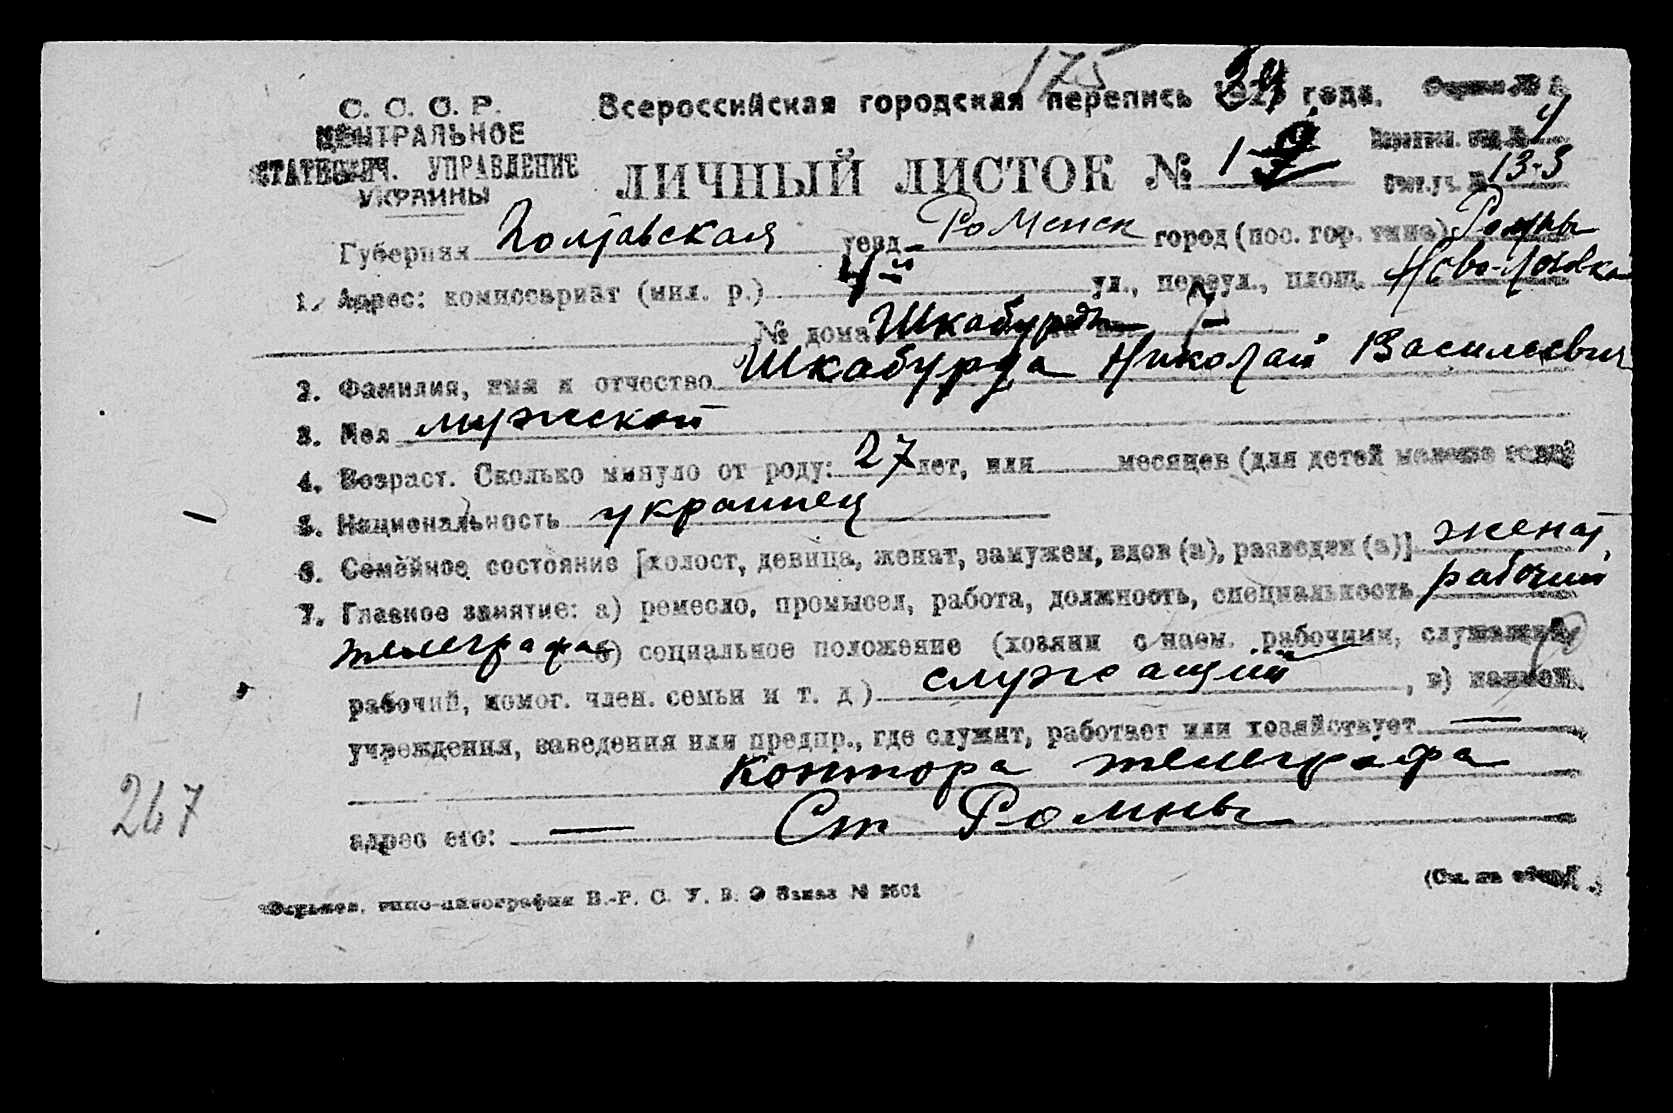 175
С. С. С. Р. Всероссийская городская перепись года. Форма № 2.
ЦЕНТРАЛЬНОЕ
СТАТИСТИЧ. УПРАВЛЕНИЕ
УКРАИНЫ
4
ЛИЧНЫЙ ЛИСТОК № 1-
13-3
Губерния Полтавская уезд Роменск город (пос. гор. типа) Ромны
1. Адрес: комиссариат (мил. р.) 4й ул., переул., площ.
№ дома Шкабурды
2. Фамилия, имя и отчество Шкабурда Николай Васильевич
3. Пол мужской
4. Возраст. Сколько минуло от роду: 27 лет, или месяцев (для детей моложе года)
5. Национальность украинец
6. Семейное состояние [холост, девица, женат, замужем, вдов (а), разведен (а)] женат,
7. Главное занятие: а) ремесло, промысел, работа, должность, специальность рабочий
телеграфа б) социальное положение (хозяин с наем. рабочими, служащий,
рабочий, помог. член. семьи и т. д) служащий, в) наимен.
учреждения, заведения или предпр., где служит, работает или хозяйствует —
Контора телеграфа
адрес его: — Ст Ромны
267
(См. на обор.)
типо-литография В.-Р. С. У. В. О Заказ № 2501